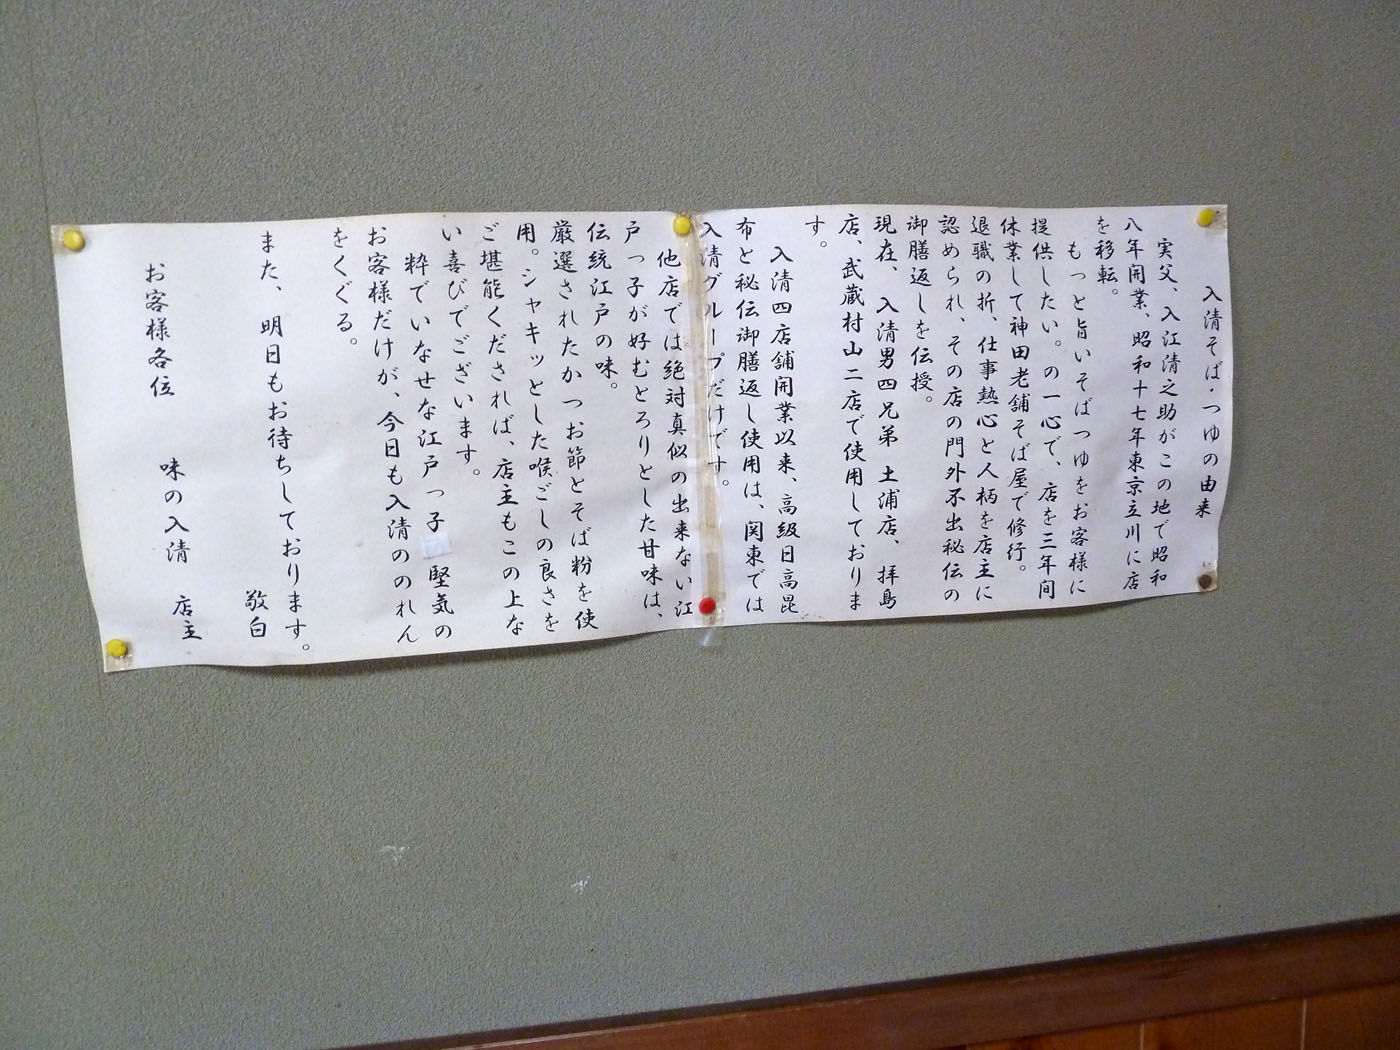 入清そば・つゆの由来
実父、入江清之助がこの地で昭和
八年開業、昭和十七年東京立川に店
を移転。
もっと旨いそばつゆをお客様に
提供したい。の一心で、店を三年間
休業して神田老舗そば屋で修行。
退職の折、仕事熱心と人柄を店主に
認められ、その店の門外不出秘伝の
御膳返しを伝授。
現在、入清男四兄弟 土浦店、拝島
店、武蔵村山二店で使用しておりま
す。
入清四店舗開業以来、高級日高昆
布と秘伝御膳返し使用は、関東では
入清グループだけです。
他店では絶対真似の出来ない江
戸っ子が好むとろりとした甘味は、
伝統江戸の味。
厳選されたかつお節とそば粉を使
用。シャキッとした喉ごしの良さを
ご堪能くだされば、店主もこの上な
い喜びでございます。
粋でいなせな江戸っ子 堅気の
お客様だけが、今日も入清ののれん
をくぐる。
また、明日もお待ちしております。
敬白
お客様各位 味の入清 店主